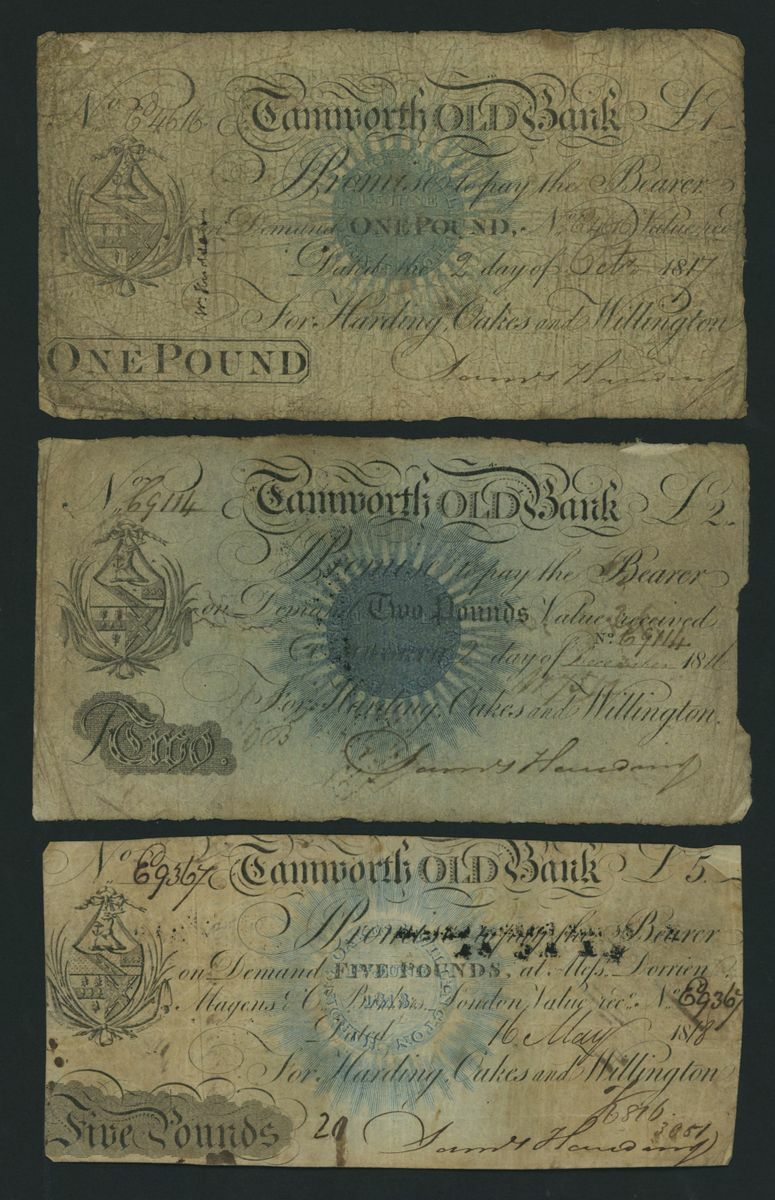 No Tamworth OLD Bank £1
I Promise to pay the Bearer
on Demand ONE POUND, No Value recd
Dated the 2 day of Octr 1817
For Harding, Oakes and Willington
ONE POUND
Saml Harding
No E9114 Tamworth OLD Bank £2
I Promise to pay the Bearer
on Demand Two Pounds Value received
No E9114
2 day of December 1816
For Harding, Oakes and Willington.
Two.
Saml Harding
No E9367 Tamworth OLD Bank £5
I Promise to pay the Bearer
on Demand FIVE POUNDS, at Mess. Dorrien
Magens & Co Bankers London Value recd No E9367
Dated 16 May 1818
For Harding, Oakes and Willington
6816
3051
Five Pounds 20
Saml Harding